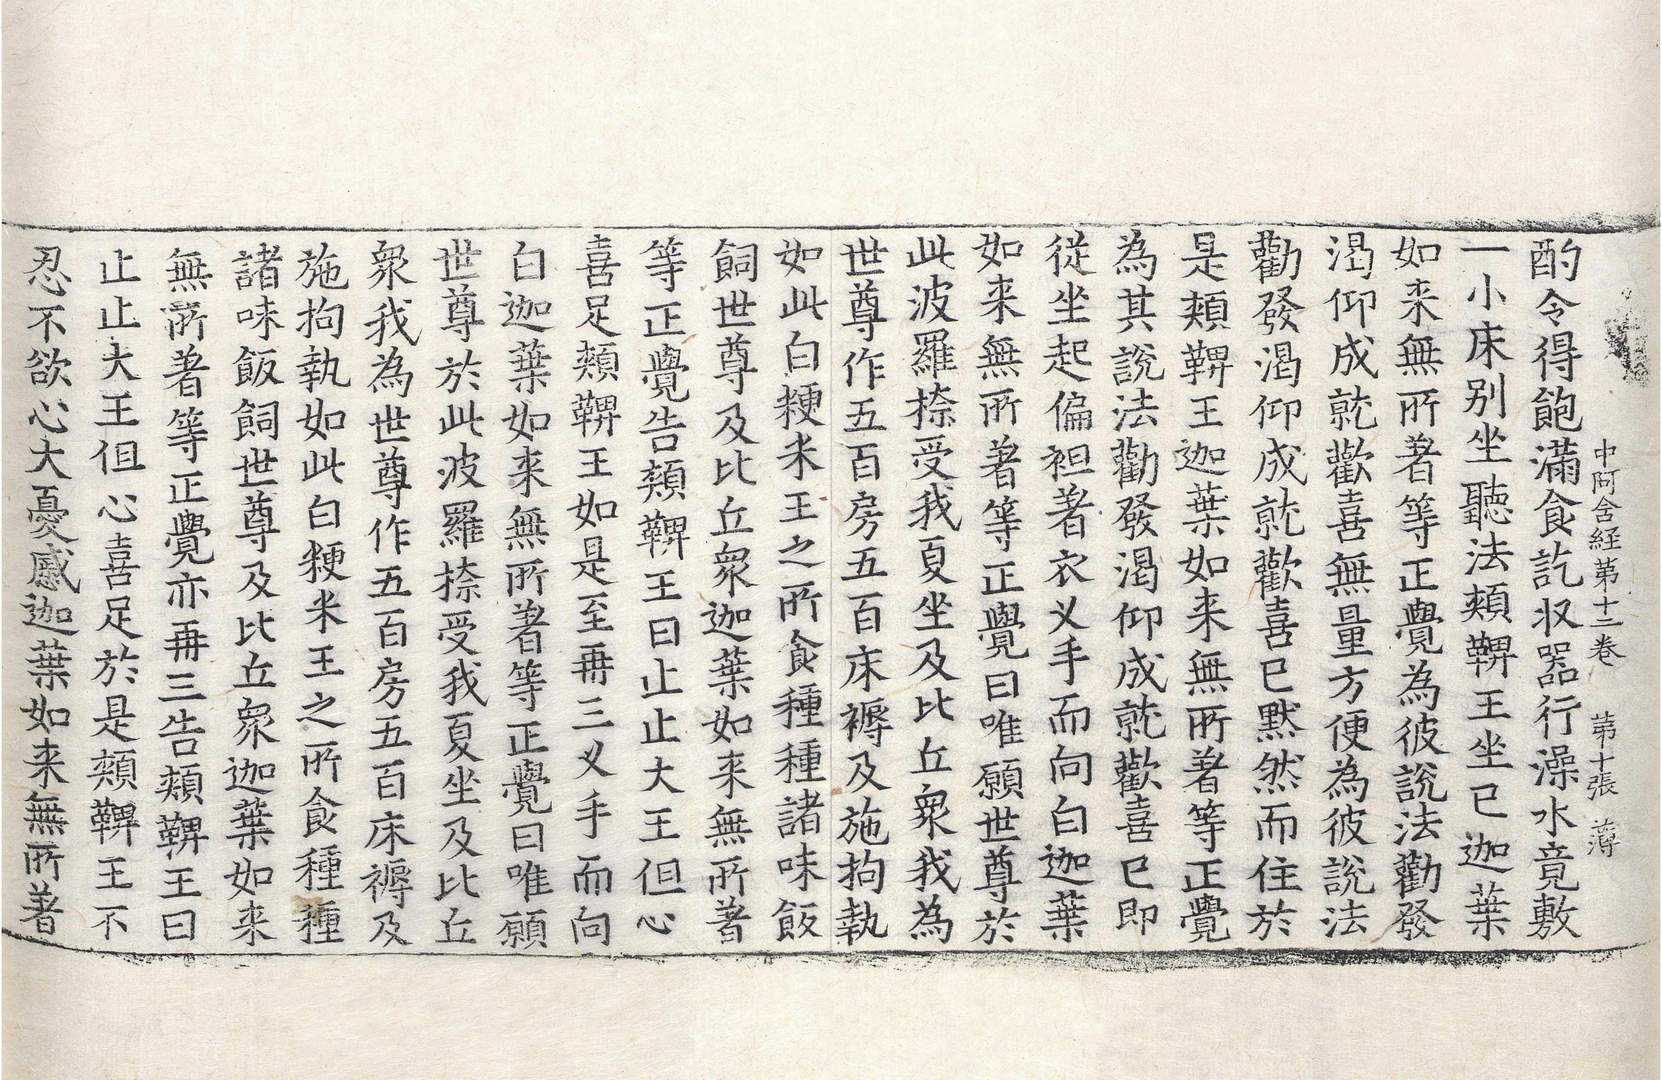 中阿含経第十二卷 第十張 薄
酌令得飽滿食訖収器行澡水竟敷
一小床别坐聽法頰鞞王坐已迦葉
如来無所著等正覺為彼説法勸發
渴仰成就歡喜無量方便為彼説法
勸發渴仰成就歡喜已默然而住於
是頰鞞王迦葉如来無所著等正覺
為其說法勸發渴仰成就歡喜已即
從坐起偏袒著衣叉手而向白迦葉
如来無所著等正覺曰唯願世尊於
此波羅㮈受我夏坐及比丘衆我為
世尊作五百房五百床褥及施拘執
如此白粳米王之所食種種諸味飯
飼世尊及比丘衆迦葉如来無所著
等正覺告頰鞞王曰止止大王但心
喜足頰鞞王如是至再三叉手而向
白迦葉如来無所著等正覺曰唯願
世尊於此波羅㮈受我夏坐及比丘
衆我為世尊作五百房五百床褥及
施拘執如此白粳米王之所食種種
諸味飯飼世尊及比丘衆迦葉如来
無所著等正覺亦再三告頰鞞王曰
止止大王但心喜足於是頰鞞王不
忍不欲心大憂慼迦葉如来無所著